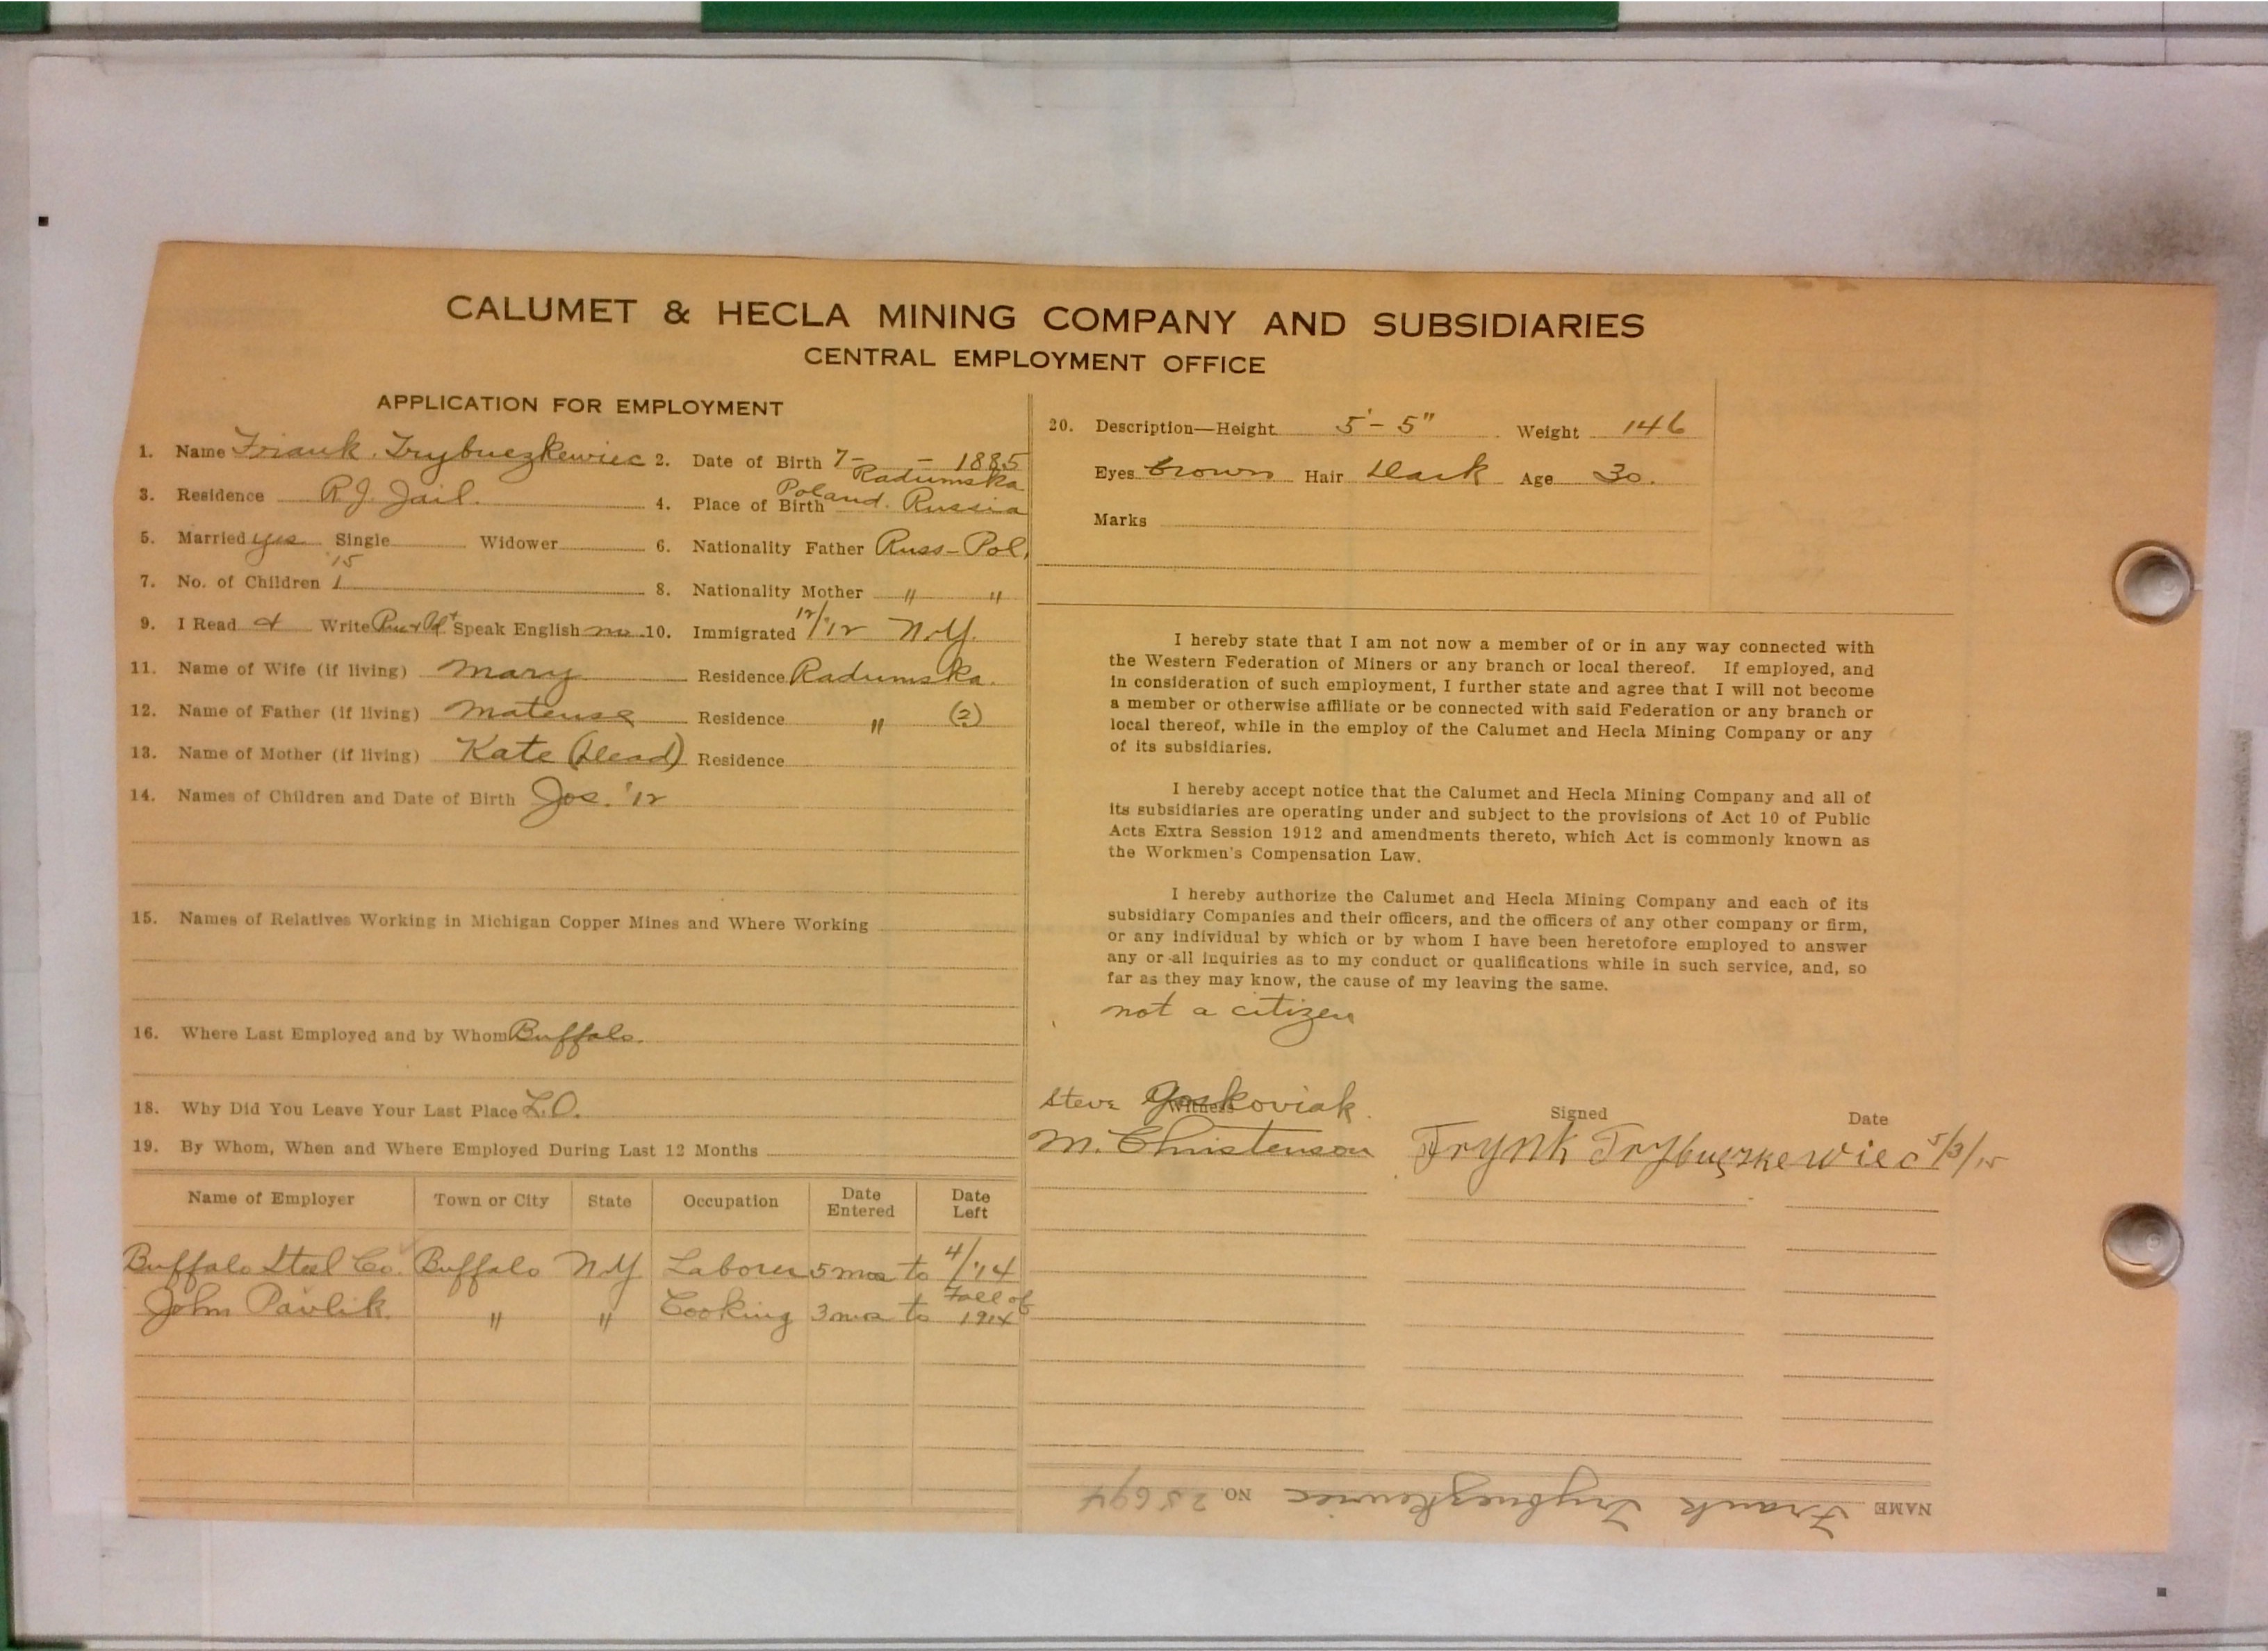 CALUMET & HECLA MINING COMPANY AND SUBSIDIARIES
CENTRAL EMPLOYMENT OFFICE
APPLICATION FOR EMPLOYMENT
1. Name Frank Trybuczkewiec 2. Date of Birth 7- - 1885
3. Residence R.J. Jail. 4. Place of Birth Radumska Poland. Russia
5. Married yes Single Widower 6. Nationality Father Russ-Pol.
7. No. of Children 1 '15 8. Nationality Mother " "
9. I Read & Write Rus & Pol Speak English no 10. Immigrated 12/'12 N.Y.
11. Name of Wife (if living) Mary Residence Radumska.
12. Name of Father (if living) Mateusz Residence " (?)
13. Name of Mother (if living) Kate (Dead) Residence
14. Names of Children and Date of Birth Jos. '12
15. Names of Relatives Working in Michigan Copper Mines and Where Working
16. Where Last Employed and by Whom Buffalo.
18. Why Did You Leave Your Last Place L.O.
19. By Whom, When and Where Employed During Last 12 Months
Name of Employer Town or City State Occupation Date Entered Date Left
Buffalo Steel Co. Buffalo N.Y Laborer 5 mos to 4/'14
John Pavlik " " Cooking 3 mos to Fall of 1914
20. Description—Height 5'- 5" Weight 146
Eyes brown Hair Dark Age 30.
Marks
I hereby state that I am not now a member of or in any way connected with
the Western Federation of Miners or any branch or local thereof. If employed, and
in consideration of such employment, I further state and agree that I will not become
a member or otherwise affiliate or be connected with said Federation or any branch or
local thereof, while in the employ of the Calumet and Hecla Mining Company or any
of its subsidiaries.
I hereby accept notice that the Calumet and Hecla Mining Company and all of
its subsidiaries are operating under and subject to the provisions of Act 10 of Public
Acts Extra Session 1912 and amendments thereto, which Act is commonly known as
the Workmen's Compensation Law.
I hereby authorize the Calumet and Hecla Mining Company and each of its
subsidiary Companies and their officers, and the officers of any other company or firm,
or any individual by which or by whom I have been heretofore employed to answer
any or all inquiries as to my conduct or qualifications while in such service, and, so
far as they may know, the cause of my leaving the same.
not a citizen
Steve Joskoviak
Witness Signed Date
M. Christenson Frynk Trybuczkewiec 5/3/15
NAME Frank Trybuczkewiec NO. 25694